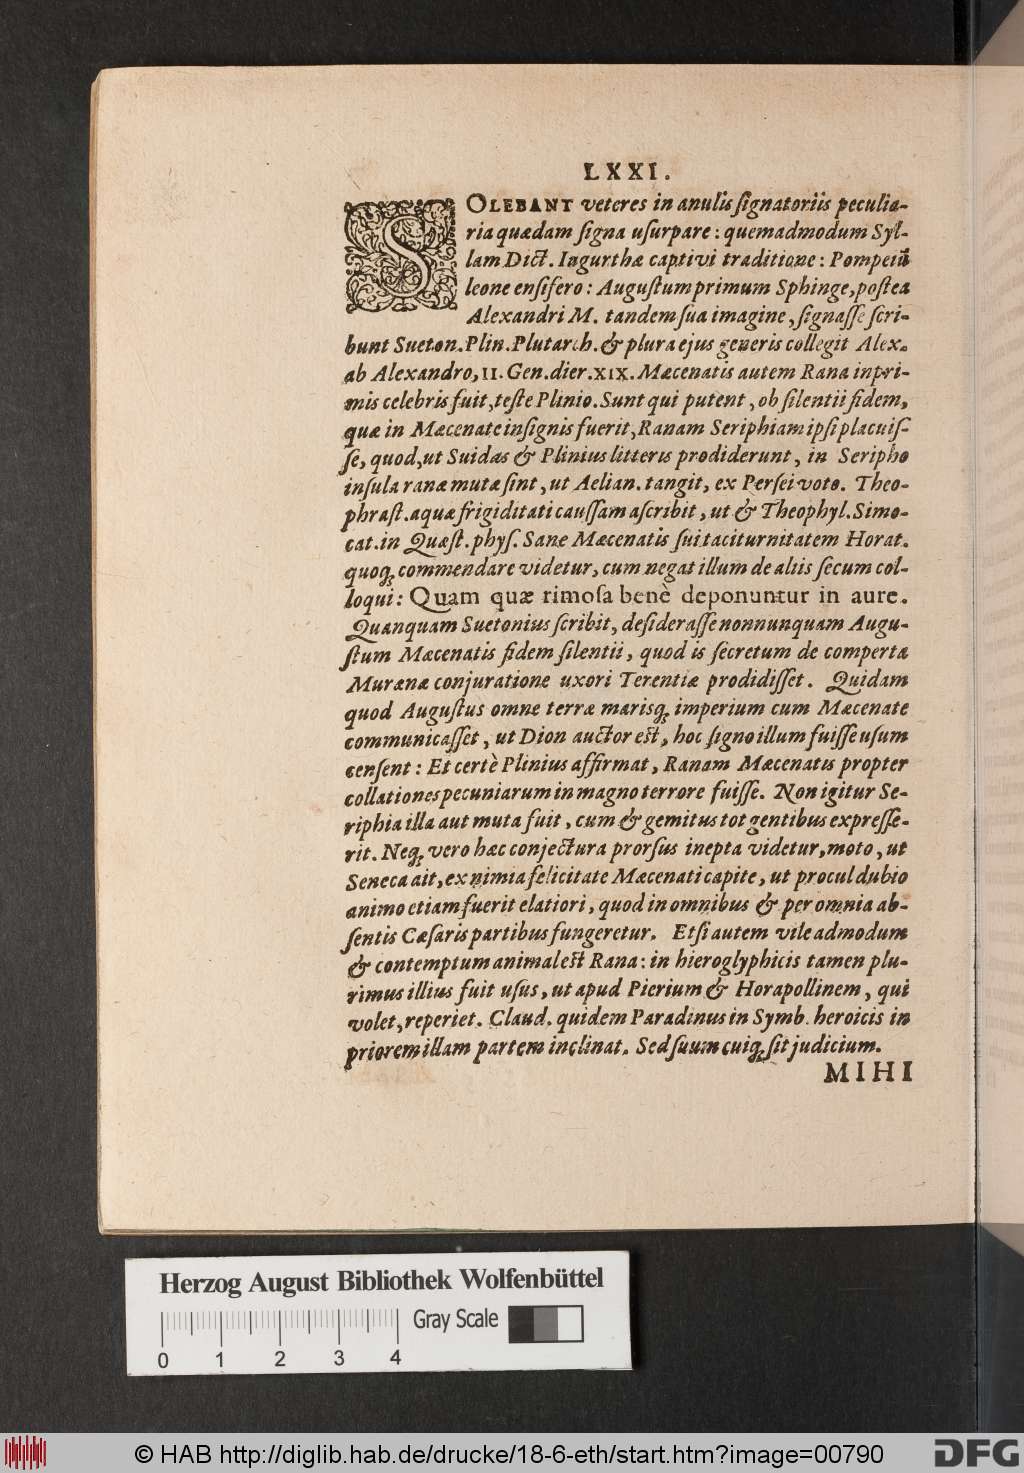 LXXI.
SOLEBANT veteres in anulis ſignatoriis peculia-
ria quædam ſigna uſurpare: quemadmodum Syl-
lam Dict. Iugurthæ captivi traditione: Pompeiũ
leone enſifero: Auguſtum primum Sphinge, poſtea
Alexandri M. tandem ſua imagine, ſignaſſe ſcri-
bunt Sueton. Plin. Plutarch. & plura ejus generis collegit Alex.
ab Alexandro, II. Gen. dier. XIX. Mæcenatis autem Rana inpri-
mis celebris fuit, teſte Plinio. Sunt qui putent, ob ſilentii fidem,
quæ in Mæcenate inſignis fuerit, Ranam Seriphiam ipſi placuiſ-
ſe, quod, ut Suidas & Plinius litteris prodiderunt, in Seripho
inſula ranæ mutæ ſint, ut Aelian. tangit, ex Perſei voto. Theo-
phraſt. aquæ frigiditati cauſſam aſcribit, ut & Theophyl. Simo-
cat. in Quæſt. phyſ. Sane Mæcenatis ſui taciturnitatem Horat.
quoq; commendare videtur, cum negat illum de aliis ſecum col-
loqui: Quam quæ rimoſa benè deponuntur in aure.
Quanquam Suetonius ſcribit, deſideraſſe nonnunquam Augu-
ſtum Mæcenatis fidem ſilentii, quod is ſecretum de comperta
Murænæ conjuratione uxori Terentiæ prodidiſſet. Quidam
quod Auguſtus omne terræ marisq; imperium cum Mæcenate
communicaſſet, ut Dion auctor eſt, hoc ſigno illum fuiſſe uſum
cenſent: Et certè Plinius affirmat, Ranam Mæcenatis propter
collationes pecuniarum in magno terrore fuiſſe. Non igitur Se-
riphia illa aut muta fuit, cum & gemitus tot gentibus expreſſe-
rit. Neq; vero hæc conjectura prorſus inepta videtur, moto, ut
Seneca ait, ex nimia felicitate Mæcenati capite, ut procul dubio
animo etiam fuerit elatiori, quod in omnibus & per omnia ab-
ſentis Cæſaris partibus fungeretur. Etſi autem vile admodum
& contemptum animal eſt Rana: in hieroglyphicis tamen plu-
rimus illius fuit uſus, ut apud Pierium & Horapollinem, qui
volet, reperiet. Claud. quidem Paradinus in Symb. heroicis in
priorem illam partem inclinat. Sed ſuum cuiq; ſit judicium.
MIHI
Herzog August Bibliothek Wolfenbüttel
Gray Scale
0 1 2 3 4
© HAB http://diglib.hab.de/drucke/18-6-eth/start.htm?image=00790
DFG